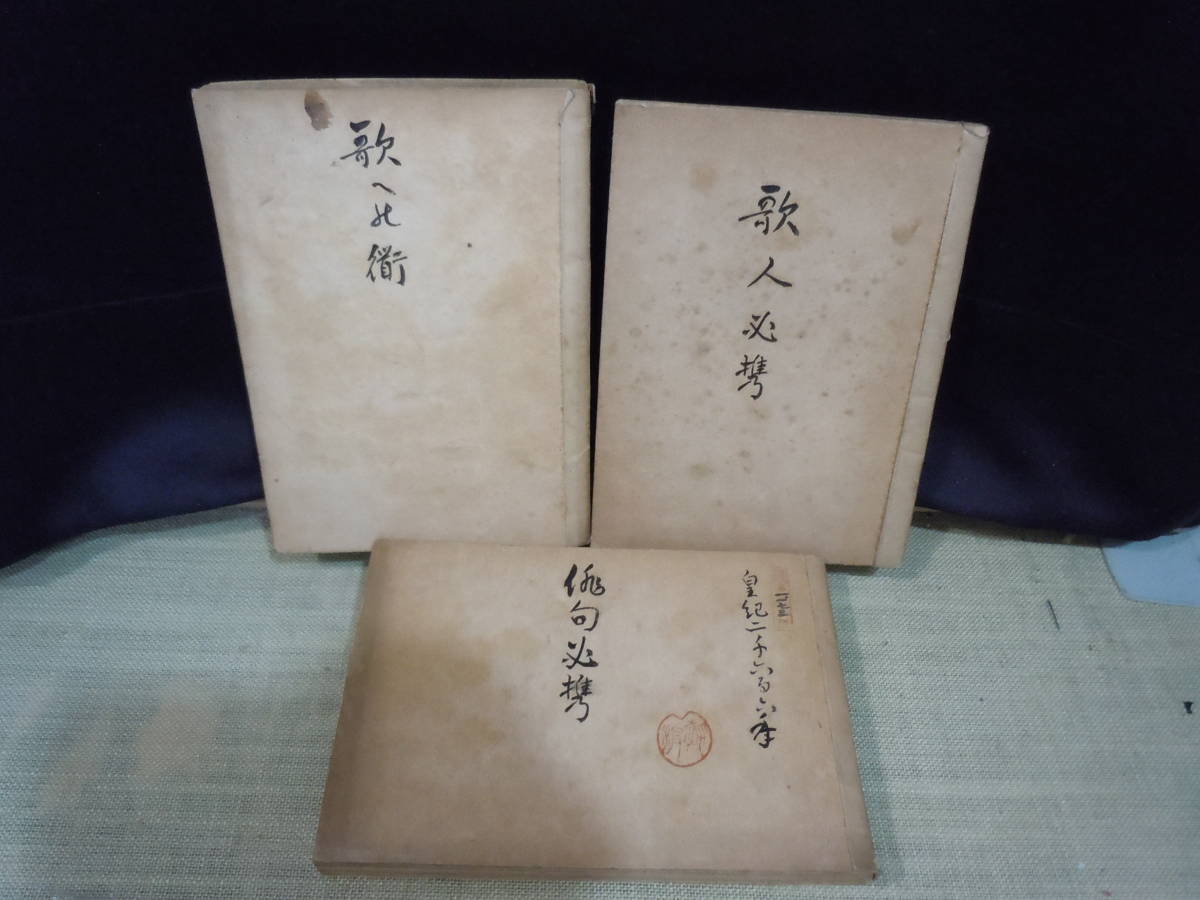 歌への街
歌人必携
皇紀二千六百六年
俳句必携